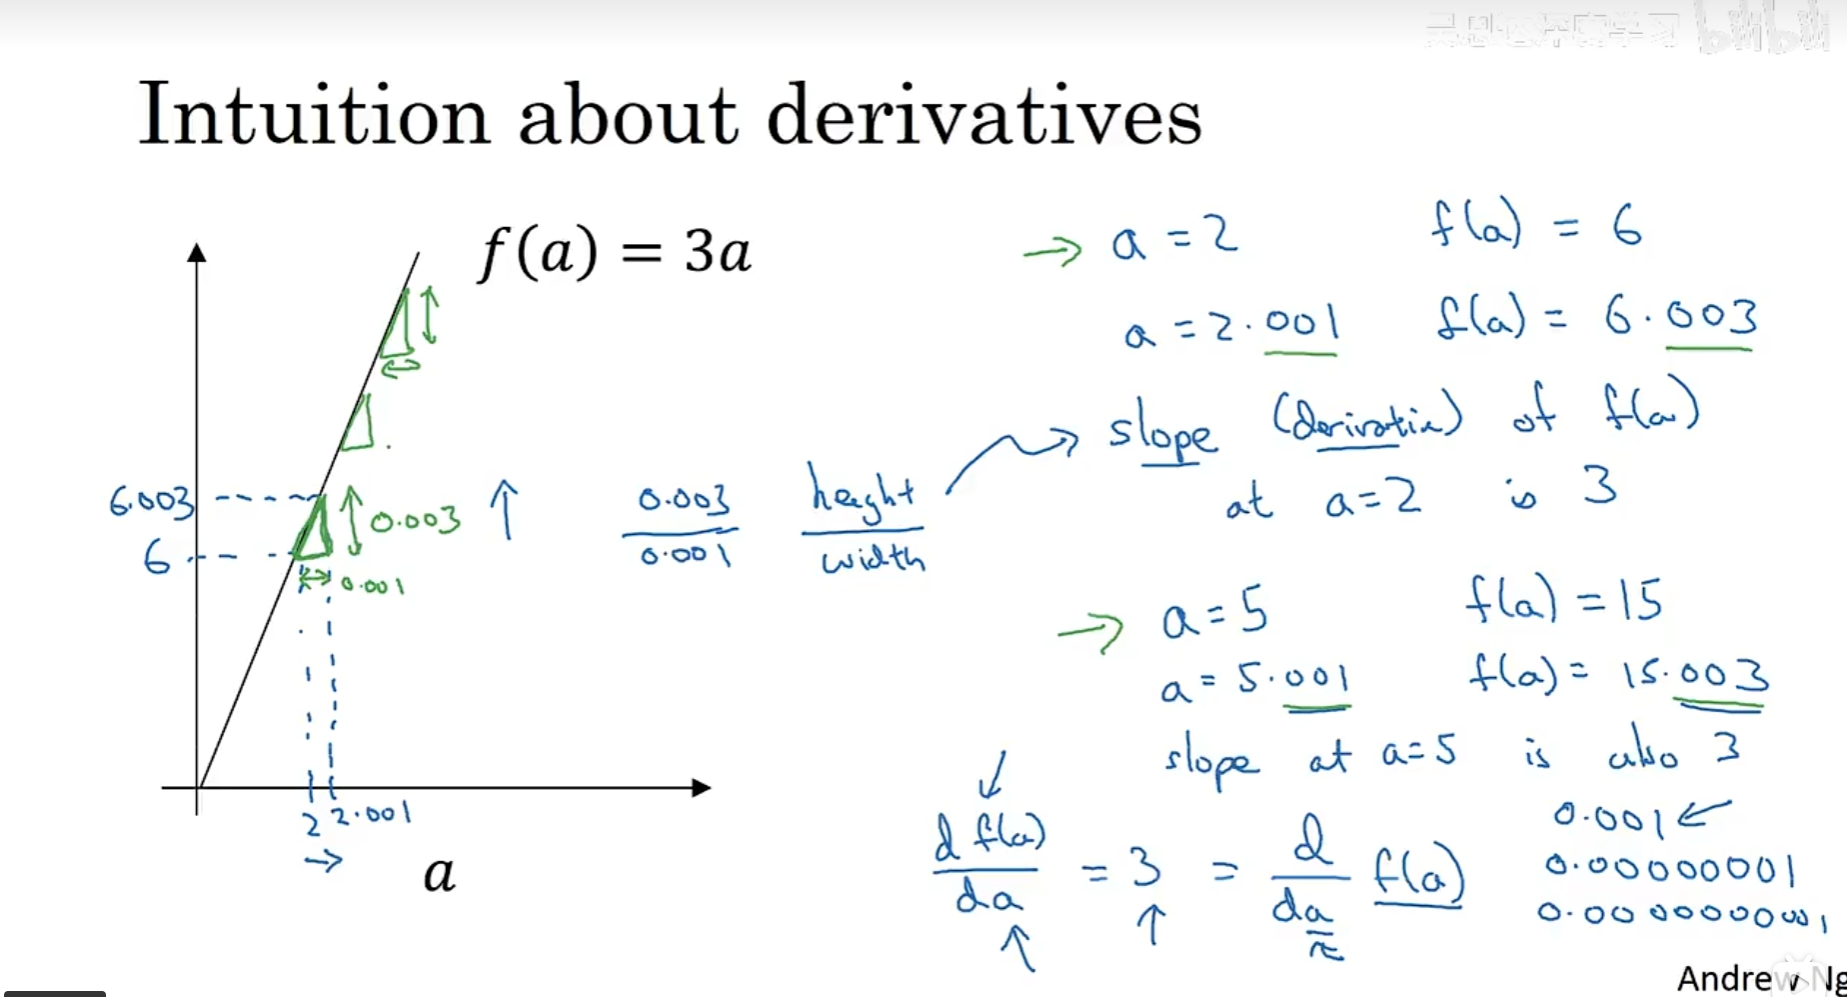 Intuition about derivatives
f(a) = 3a
6.003
6
0.003
0.001
2
2.001
a
0.003 / 0.001
height / width
a = 2    f(a) = 6
a = 2.001    f(a) = 6.003
slope (derivative) of f(a)
at a=2 is 3
a = 5    f(a) = 15
a = 5.001    f(a) = 15.003
slope at a=5 is also 3
d f(a) / da = 3 = d / da f(a)
0.001 ←
0.00000001
Andrew Ng
bilibili